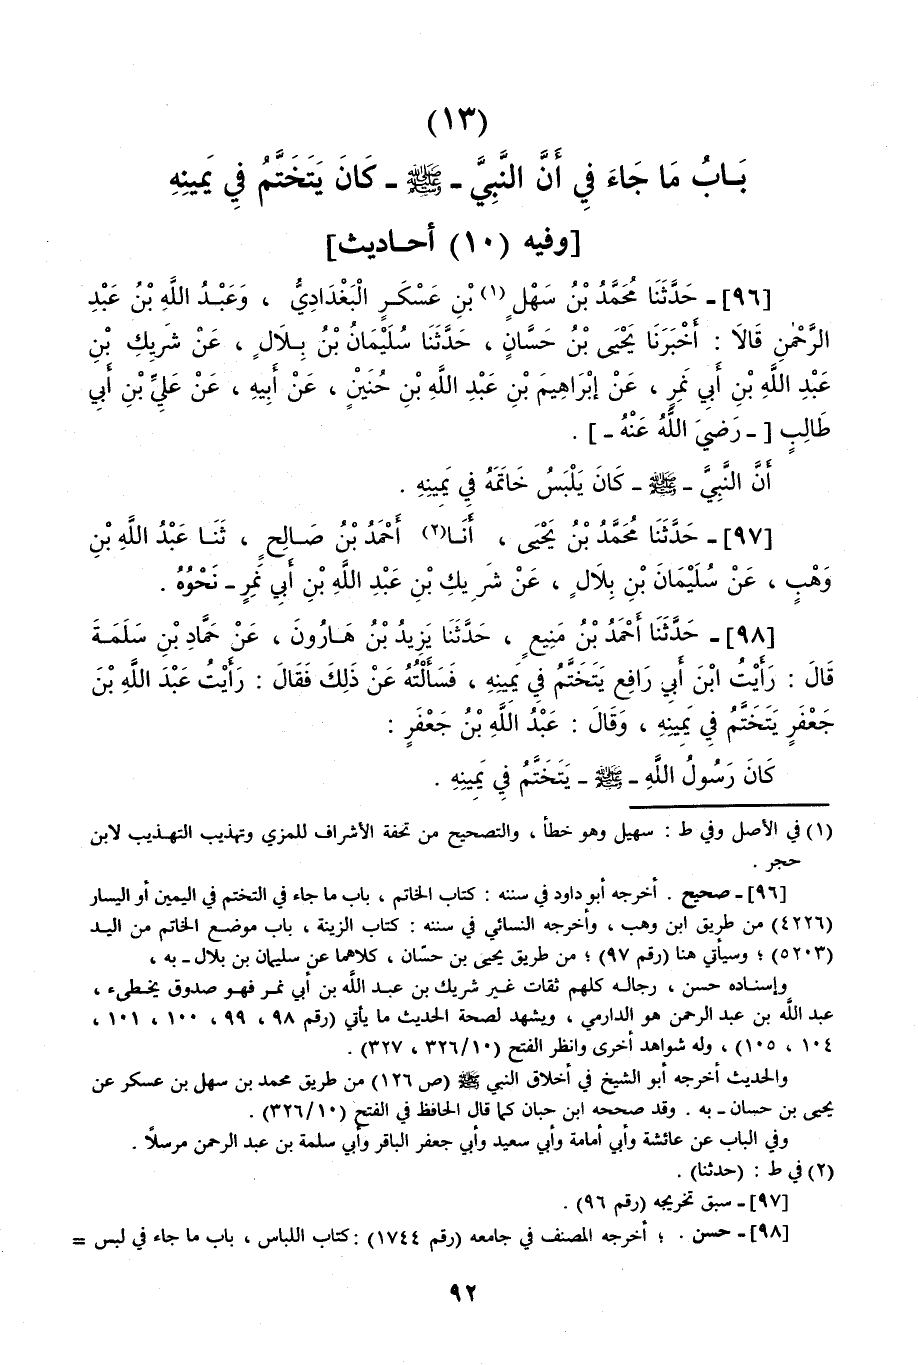 (١٣)
بَابُ مَا جَاءَ فِي أَنَّ النَّبِيَّ ـ ﷺ ـ كَانَ يَتَخَتَّمُ فِي يَمِينِهِ
[وفيه (١٠) أحاديث]
[٩٦] ـ حَدَّثَنَا مُحَمَّدُ بْنُ سَهْلٍ (١) بْنِ عَسْكَرٍ الْبَغْدَادِيُّ ، وَعَبْدُ اللَّهِ بْنُ عَبْدِ
الرَّحْمٰنِ قَالَا : أَخْبَرَنَا يَحْيَى بْنُ حَسَّانٍ ، حَدَّثَنَا سُلَيْمَانُ بْنُ بِلَالٍ ، عَنْ شَرِيكِ بْنِ
عَبْدِ اللَّهِ بْنِ أَبِي نَمِرٍ ، عَنْ إِبْرَاهِيمَ بْنِ عَبْدِ اللَّهِ بْنِ حُنَيْنٍ ، عَنْ أَبِيهِ ، عَنْ عَلِيِّ بْنِ أَبِي
طَالِبٍ [ ـ رَضِيَ اللَّهُ عَنْهُ ـ ] .
أَنَّ النَّبِيَّ ـ ﷺ ـ كَانَ يَلْبَسُ خَاتَمَهُ فِي يَمِينِهِ .
[٩٧] ـ حَدَّثَنَا مُحَمَّدُ بْنُ يَحْيَى ، أَنَا (٢) أَحْمَدُ بْنُ صَالِحٍ ، ثَنَا عَبْدُ اللَّهِ بْنِ
وَهْبٍ ، عَنْ سُلَيْمَانَ بْنِ بِلَالٍ ، عَنْ شَرِيكِ بْنِ عَبْدِ اللَّهِ بْنِ أَبِي نَمِرٍ ـ نَحْوُهُ .
[٩٨] ـ حَدَّثَنَا أَحْمَدُ بْنُ مَنِيعٍ ، حَدَّثَنَا يَزِيدُ بْنُ هَارُونَ ، عَنْ حَمَّادِ بْنِ سَلَمَةَ
قَالَ : رَأَيْتُ ابْنَ أَبِي رَافِعٍ يَتَخَتَّمُ فِي يَمِينِهِ ، فَسَأَلْتُهُ عَنْ ذَلِكَ فَقَالَ : رَأَيْتُ عَبْدَ اللَّهِ بْنَ
جَعْفَرٍ يَتَخَتَّمُ فِي يَمِينِهِ ، وَقَالَ : عَبْدُ اللَّهِ بْنُ جَعْفَرٍ :
كَانَ رَسُولُ اللَّهِ ـ ﷺ ـ يَتَخَتَّمُ فِي يَمِينِهِ .
(١) في الأصل وفي ط : سهيل وهو خطأ ، والتصحيح من تحفة الأشراف للمزي وتهذيب التهذيب لابن
حجر .
[٩٦] ـ صحيح . أخرجه أبو داود في سننه : كتاب الخاتم ، باب ما جاء في التختم في اليمين أو اليسار
(٤٢٢٦) من طريق ابن وهب ، وأخرجه النسائي في سننه : كتاب الزينة ، باب موضع الخاتم من اليد
(٥٢٠٣) ؛ وسيأتي هنا (رقم ٩٧) ؛ من طريق يحيى بن حسّان ، كلاهما عن سليمان بن بلال ـ به ،
وإسناده حسن ، رجاله كلهم ثقات غير شريك بن عبد الله بن أبي نمر فهو صدوق يخطىء ،
عبد الله بن عبد الرحمن هو الدارمي ، ويشهد لصحة الحديث ما يأتي (رقم ٩٨ ، ٩٩ ، ١٠٠ ، ١٠١ ،
١٠٤ ، ١٠٥) ، وله شواهد أخرى وانظر الفتح (١٠/ ٣٢٦ ، ٣٢٧) .
والحديث أخرجه أبو الشيخ في أخلاق النبي ﷺ (ص ١٢٦) من طريق محمد بن سهل بن عسكر عن
يحيى بن حسان ـ به . وقد صححه ابن حبان كما قال الحافظ في الفتح (١٠/ ٣٢٦) .
وفي الباب عن عائشة وأبي أمامة وأبي سعيد وأبي جعفر الباقر وأبي سلمة بن عبد الرحمن مرسلاً .
(٢) في ط : (حدثنا) .
[٩٧] ـ سبق تخريجه (رقم ٩٦) .
[٩٨] ـ حسن . ؛ أخرجه المصنف في جامعه (رقم ١٧٤٤) : كتاب اللباس ، باب ما جاء في لبس =
٩٢